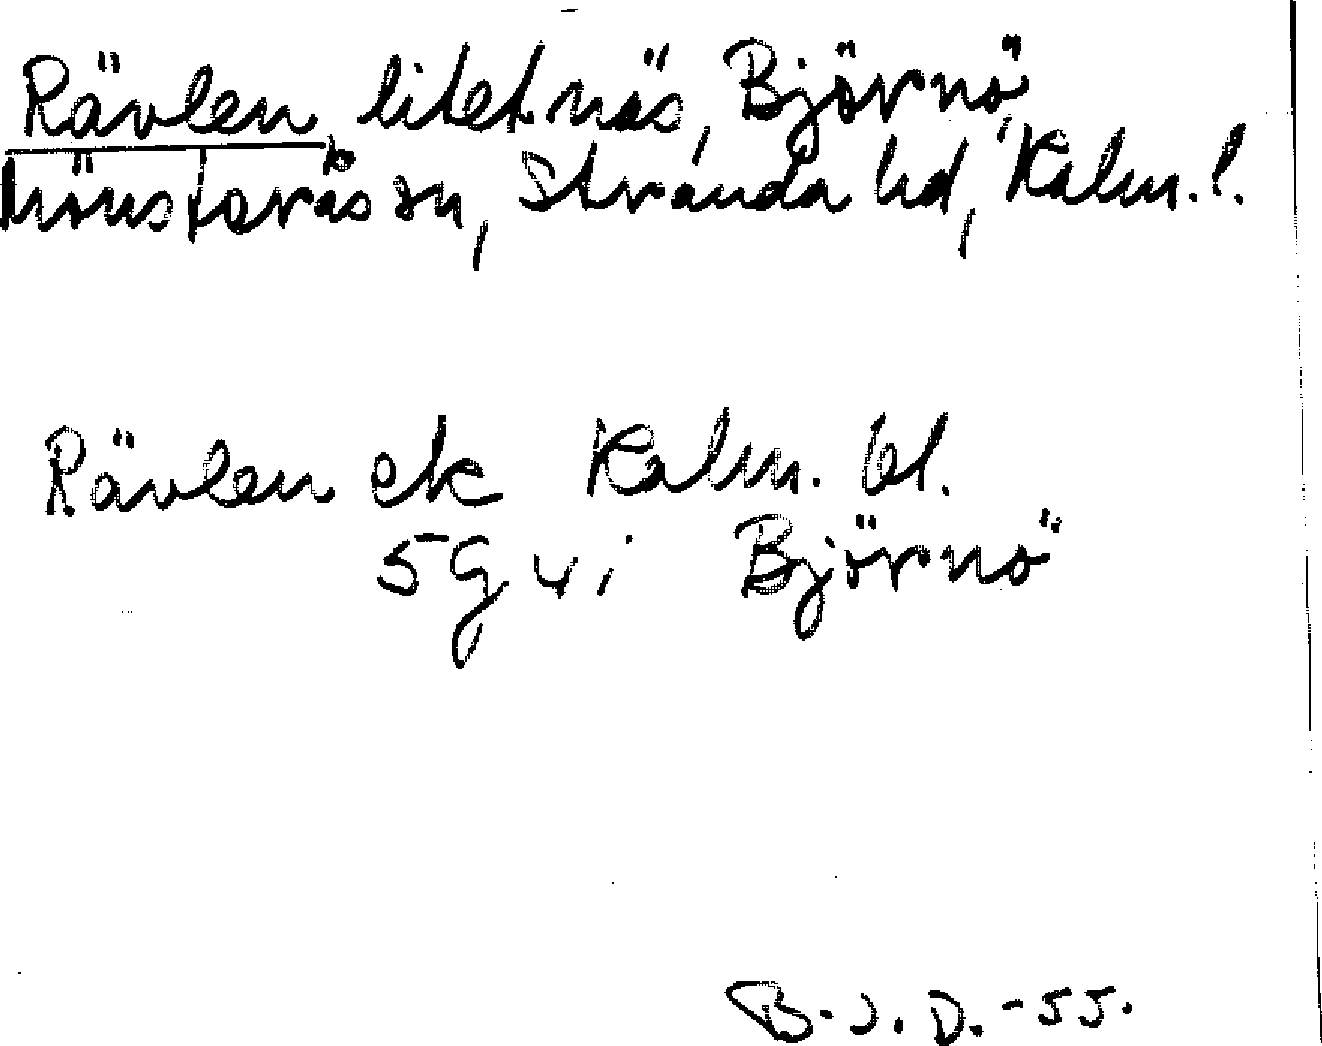 Rävlen, litet näs, Björnö,
Mönsterås sn, Stranda hd, Kalm. l.
Rävlen ek Kalm. bl.
5G 4i Björnö
B. J. D. -55.